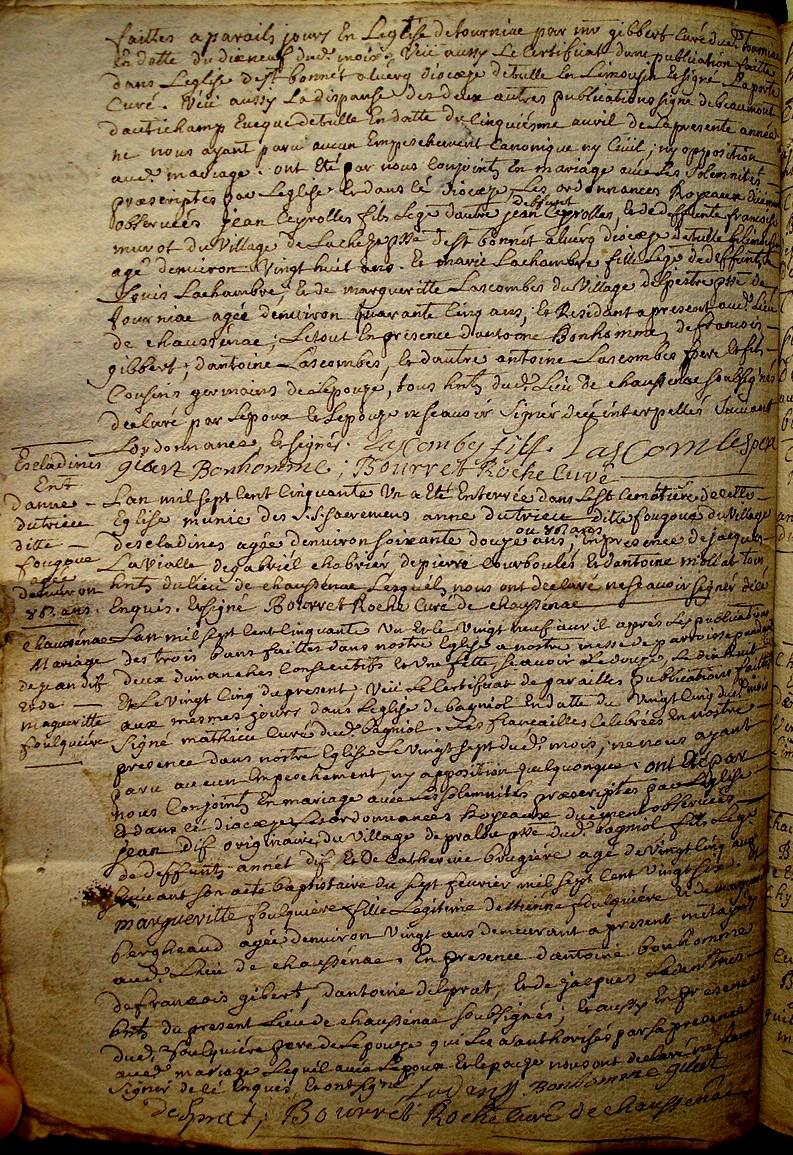 faittes a pareils jours En Leglise de tourniac par mr gibbert Curé dud. tourniac
En datte du dixneuf dud. mois; Veu aussy Le Certificat dune publication faitte
dans Leglise de st. bonnet aluerg dioceze de tulle En Limousin Signé Laporte
Curé. Veu aussy La dispanse des deux autres publications signé de beaumont
dautichamp Eveque de tulle En datte du Cinquiesme avril de La presente année
ne nous ayant paru aucun Empeschement Canonique ny Civil, ny opposition
aud. mariage: ont Eté par nous Conjoints En mariage avec Les Solemnités
præscriptes par Leglise Et dans Le dioceze, Les ordonnances Royeaux duement
observées jean Ceyrolles fils Lege dautre deffunt jean Ceyrolles, Et de deffunte francoise
murot du Village de Lacheze psse de st bonnet aluerg dioceze de tulle
agé denviron Vingt huit ans. Et marie Lachambre fille Lege de deffunt
Louis Lachambre, Et de margueritte Lascombes du Village de psse de
tourniac agée denviron quarante Cinq ans, Et Residant a present aud. Lieu
de chaussenac; Le tout En presence dantoine Bonhomme, de francois
gibbert, dantoine Lascombes, Et dautre antoine Lascombes pere Et fils
Cousins germains de Lepouze, tous hnts dud. Lieu de chaussenac soubsignés
declaré par Lepoux Et Lepouze ne scavoir Signer de ce interpellés Suivant
Lordonnance Et signés. Lascombes fils Lascombes pere
gibert Bonhomme; Bourret Roche Curé
Escladines
Ent
danne
dutrieu
ditte
fougoue
agée
denviron
76. ans.
Lan mil sept Cent Cinquante Un a Eté Enterrée dans Le st Cemetiere de cette
Eglise munie des Ss. sacremens anne dutrieu ditte fougoue du Village
descladines agée denviron soixante douze ans, ou 76 ans En presence de jacques
La Vialle de gabriél chabrier de pierre Courboulés Et dantoine miallat tous
hnts du Lieu de chaussenac Lesquels nous ont declaré ne scavoir signer de ce
Enquis. Et signé Bourret Roche Curé de chaussenac
Chaussénac
Mariage
de jean dif
Et de
margueritte
foulquiére
Lan mil sept Cent Cinquante Un Et Le Vingt neuf avril après Les publications
des trois bans faittes dans nostre Eglise a nostre messe de paroisse pendant
deux dimanches Consecutifs Et Une fette, scavoir Le douze, Le dix huit
Et Le Vingt Cinq du present Veu Le Certificat de pareilles publications faittes
aux mesmes jours dans Leglise de bagniol En datte du Vingt Cinq dud. mois
Signé mathieu Curé dud. bagniol. Les fiançailles Celebrées En nostre
presence dans nostre Eglise Le Vingt sept dud. mois, ne nous ayant
paru aucun Empeschement, ny opposition quelquonque: ont Eté par
nous Conjoints En mariage avec Les solemnités præscriptes par Leglise
Et dans Le dioceze, Les ordonnances Royeaux duëment observées
jean dif originaire du Village de pralou psse dud. bagniol fils Lege
de deffunts annét dif Et de Catherine brugiére agé de Vingt Cinq ans
suivant son acte baptistaire du sept fevrier mil sept Cent Vingt six. Et
margueritte foulquiére fille Legitime destienne foulquiére Et de
bergheaud agée denviron Vingt ans demeurant a present metayers
aud. Lieu de chaussénac. En presence dantoine bonhomme
de francois gibert, dantoine delprat, Et de jacques
hnts du present Lieu de chaussénac soubsignés; Et aussy En presence
dud. foulquiére pere de Lepouze qui Les a authorisés par sa presence
aud. mariage Lequél avec Lepoux Et Lepouze nous ont declaré ne scavoir
Signer de ce Enquis Et ont signé Bonhomme gibert
delprat; Bourret Roche Curé de chaussenac